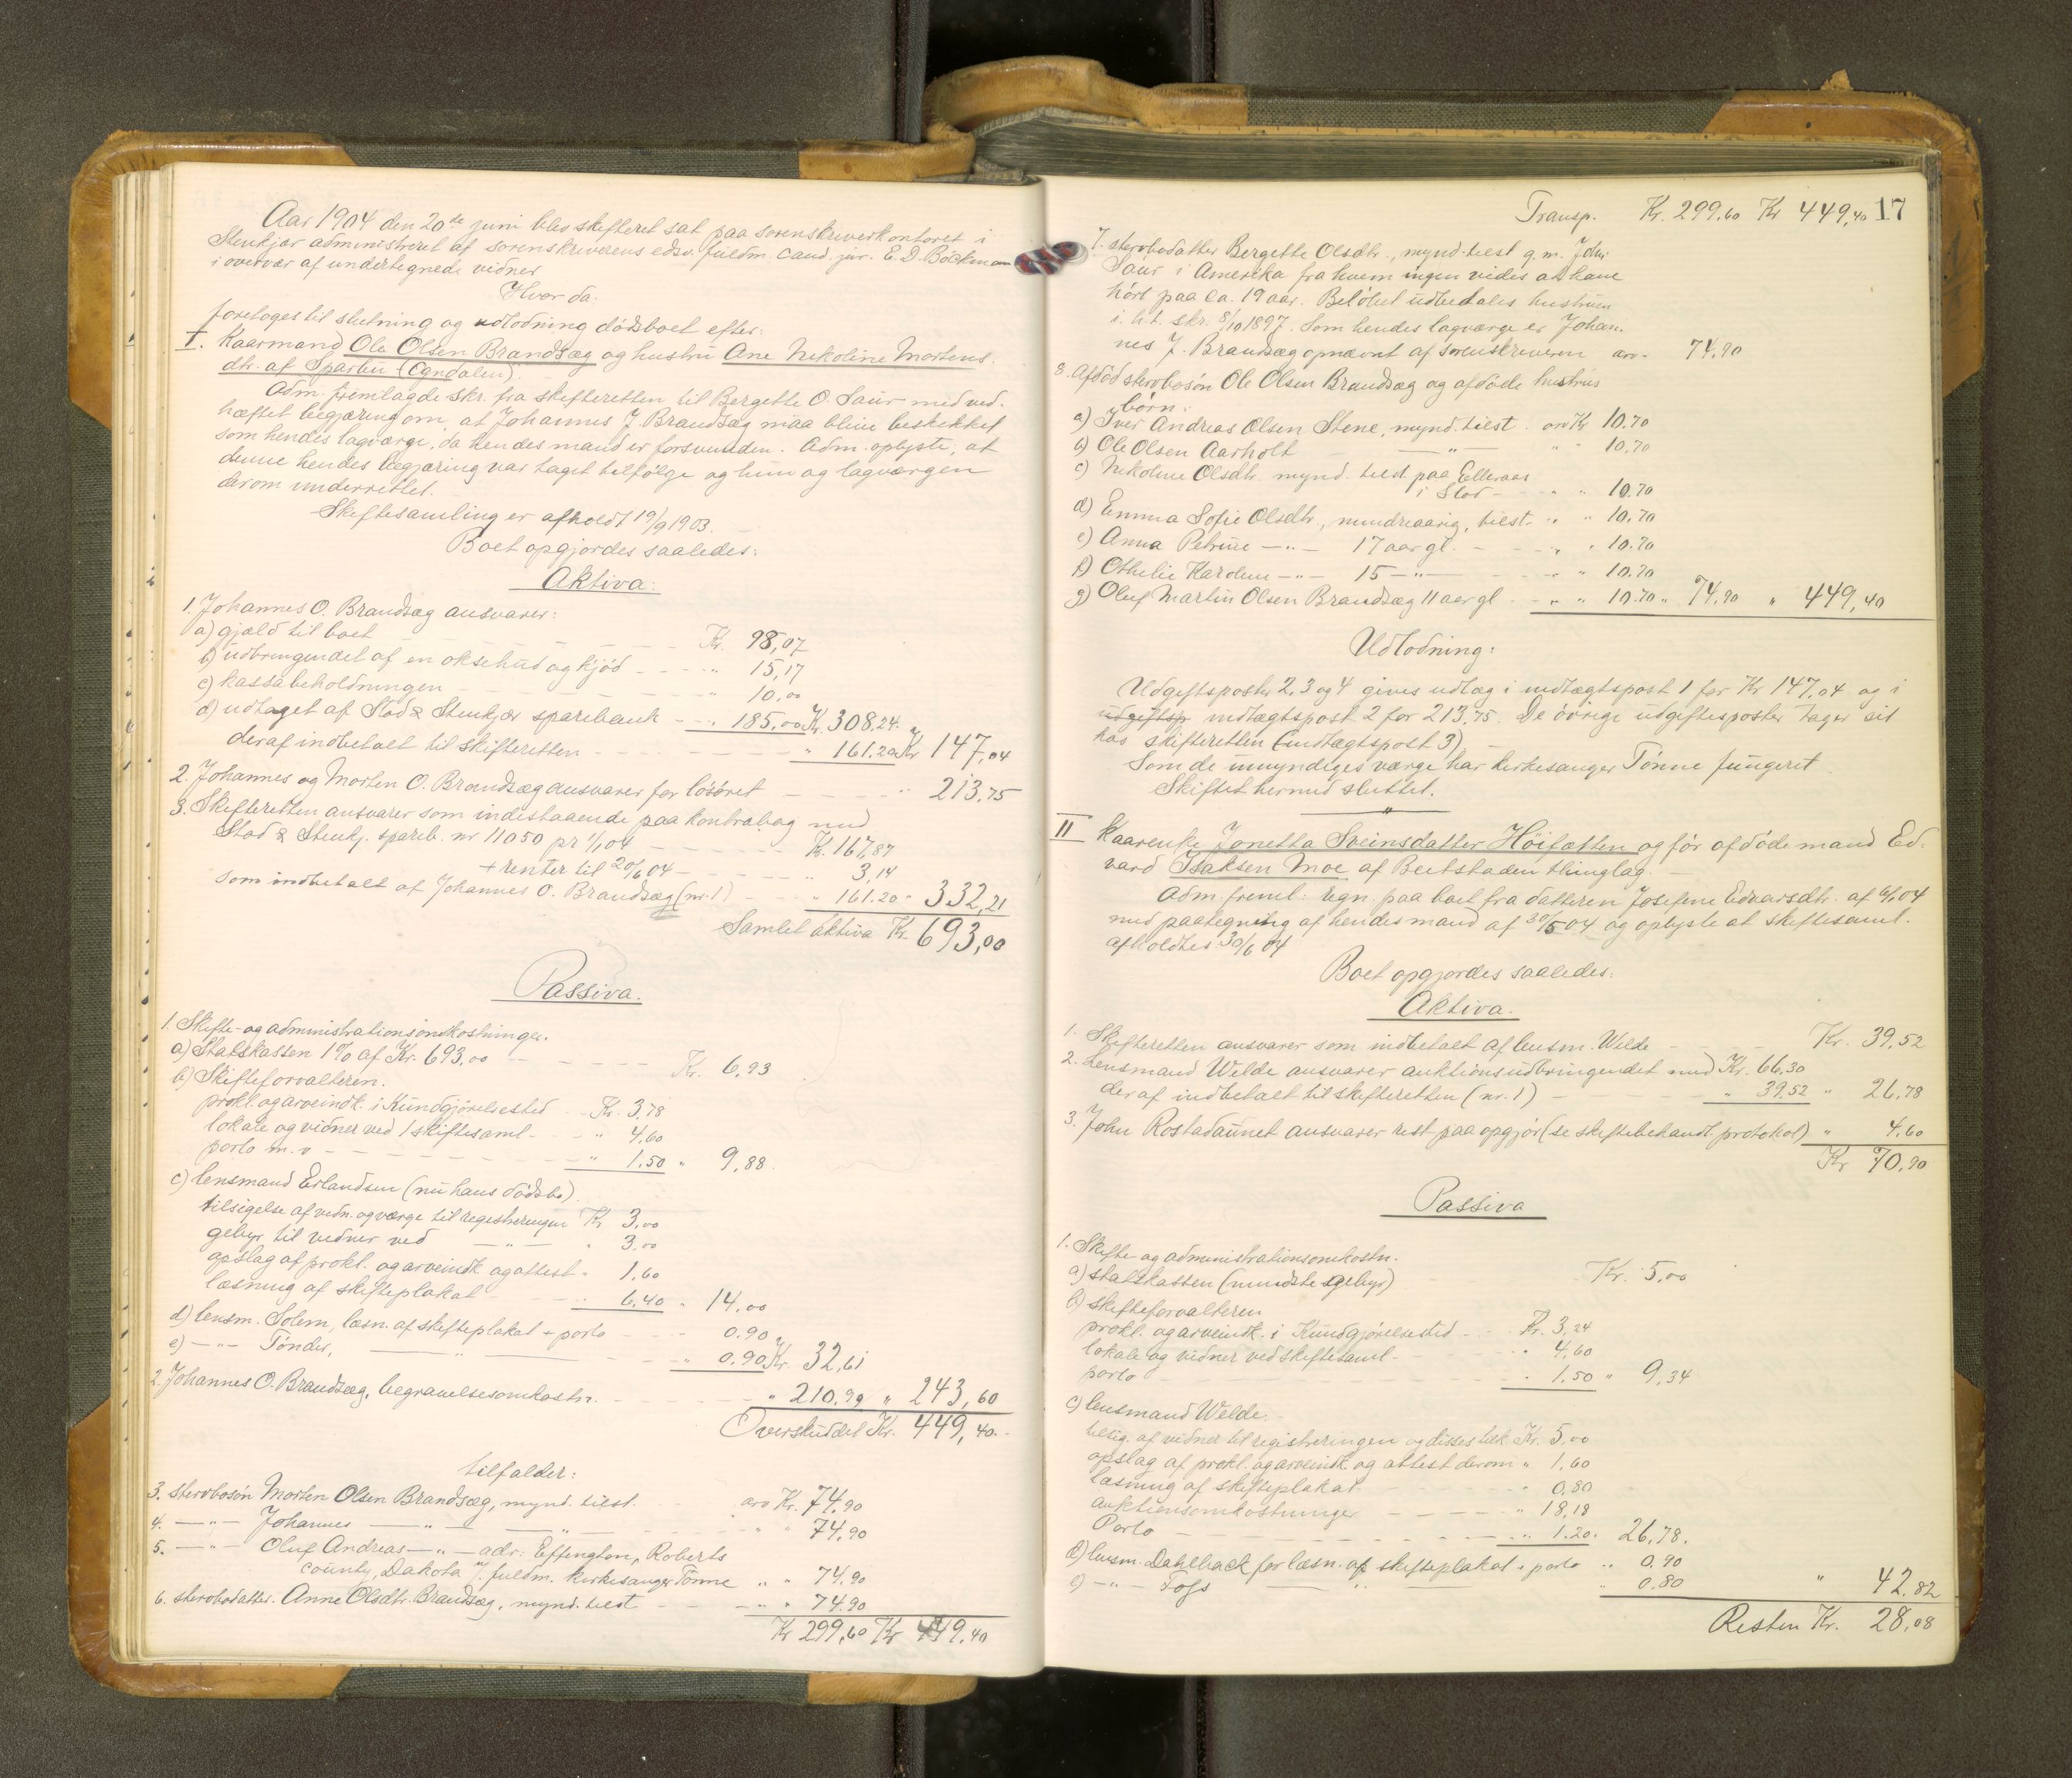 Aar 1904 den 20de juni blev skifteret sat paa sorenskriverkontoret i
Stenkjær administreret af sorenskriverens edsv. fuldm. cand. jur. E. D. Böckman
i overvær af undertegnede vidner
Hvor da.
foretoges til slutning og udlodning dödsboet efter:
I. Kaarmand Ole Olsen Brandsæg og hustru Ane Nikoline Mortens-
dtr. af Sparbu (Ogndalen).
Adm. fremlagde skr. fra skifteretten til Bergette O. Saur med ved-
hæftet begjæring om, at Johannes J. Brandsæg maa blive beskikket
som hendes lagværge, da hendes mand er forsvunden. Adm. oplyste, at
denne hendes begjæring var taget tilfölge og hun og lagværgen
derom underrettet.
Skiftesamling er afholdt 19/9 1903.
Boet opgjordes saaledes:
Aktiva:
1. Johannes O. Brandsæg ansvarer:
a) gjæld til boet Kr. 98,07
b) udbringendet af en oksehud og kjöd " 15,17
c) kassabeholdningen " 10.00
d) udtaget af Stod & Stenkjær sparebank " 185,00 Kr. 308,24.
deraf indbetalt til skifteretten " 161.20 Kr 147,04
2. Johannes og Morten O. Brandsæg ansvarer for lösöret " 213,75
3. Skifteretten ansvarer som indestaaende paa kontrabog med
Stod & Stenkj. spareb. nr 11050 pr 1/1 04 Kr. 167,87
+ renter til 20/6 04 " 3,14
som indbetalt af Johannes O. Brandsæg (nr. 1) " 161.20 " 332,21
Samlet aktiva Kr. 693,00
Passiva.
1. Skifte- og administrationsomkostninger.
a) Statskassen 1% af Kr. 693,00 Kr. 6,93
b) Skifteforvalteren.
prokl. og arveindk. i Kundgjörelsestid. Kr. 3,78
lokale og vidner ved 1 skiftesaml. " 4,60
porto m. v " 1.50 " 9,88.
c) lensmand Erlandsen (nu hans dödsbo).
tilsigelse af vidn. og værge til registreringen Kr 3,00
gebyr til vidner ved —"— " 3,00
opslag af prokl. og arveindk. og attest " 1,60
læsning af skifteplakat " 6,40 " 14,00
d) lensm. Solem, læsn. af skifteplakat + porto 0.90
e) —"— Tönder, —"— " 0.90 Kr. 32,61
2. Johannes O. Brandsæg, begravelsesomkostn. " 210,99 " 243,60
Overskuddet Kr. 449,40.
tilfalder:
3. stervbosön Morten Olsen Brandsæg, mynd. tilst. arv Kr. 74,90
4. —"— Johannes —"— —"— " " 74,90
5. —"— Oluf Andreas —"— adr: Effington, Roberts
county, Dakota v/ fuldm. kirkesanger Tönne " " 74,90
6. stervbodatter. Anne Olsdtr. Brandsæg, mynd. tilst " " 74.90
Kr 299,60 Kr 449,40
Transp. Kr. 299,60 Kr 449,40 17
7. stervbodatter Bergette Olsdtr., mynd. tilst g. m.
Saur i Amerika fra hvem ingen vides at have
hört paa ca. 19 aar. Belöbet udbetales hustruen
i. h. t. skr. 8/10 1897. Som hendes lagværge er Johan-
nes J. Brandsæg opnævnt af sorenskriveren arv. 74,90
8. Afdöd stervbosön Ole Olsen Brandsæg og afdöde hustrus
börn:
a) Iver Andreas Olsen Stene, mynd. tilst. arv Kr 10.70
b) Ole Olsen Aarholt —"— " 10.70
c) Nikoline Olsdtr. mynd. tilst paa Elleraas
i Stod " " 10.70
d) Emma Sofie Olsdtr., mindreaarig, tilst. " " 10.70
e) Anna Petrine —"— 17 aar gl. " " 10.70
f) Othelie Karoline —"— 15 —"— " " 10.70
g) Oluf Martin Olsen Brandsæg 11 aar gl " " 10.70 " 74,90 " 449,40
Udlodning:
Udgiftsposter 2, 3 og 4 gives udlæg i indtægtspost 1 for Kr 147,04 og i
udgiftsp indtægtspost 2 for 213,75. De övrige udgiftsposter tager sit
hos skifteretten (indtægtspost 3)
Som de umyndiges værge har kirkesanger Tönne fungeret.
Skiftet hermed sluttet.
"
II Kaarenke Jonetta Sveinsdatter Höifætten og för afdöde mand Ed-
vard Isaksen Moe af Beitstaden thinglag.
Adm. freml. regn. paa boet fra datteren Josefine Edvarsdtr. af 4/1 04
med paategning af hendes mand af 30/5 04 og oplyste at skiftesaml.
afholdtes 30/1 04
Boet opgjordes saaledes:
Aktiva.
1. Skifteretten ansvarer som indbetalt af lensm. Welde Kr. 39,52
2. Lensmand Welde ansvarer auktionsudbringendet med Kr. 66,30
deraf indbetalt til skifteretten (nr. 1) " 39,52 " 26,78
3. John Rostadaunet ansvarer rest paa opgjör (se skiftebehandl. protokol) " 4.60
Kr 70,90
Passiva
1. Skifte- og administrationsomkostn.
a) statskassen (mindste gebyr) Kr. 5,00
b) skifteforvalteren
prokl. og arveindk. i Kundgjörelsestid. Kr. 3,24
lokale og vidner ved skiftesaml. " 4,60
porto " 1.50 " 9,34
c) lensmand Welde.
tilsig. af vidner til registreringen og disses tilk Kr. 5,00
opslag af prokl. og arveindk. og attest derom " 1,60
læsning af skifteplakat " 0,80
auktionsomkostninger " 18,18
Porto " 1.20. 26,78.
d) lensm. Dahlback for læsn. af skifteplakat + porto " 0,90
e) —"— Foss —"— " 0,80 " 42,82
Resten Kr. 28,08